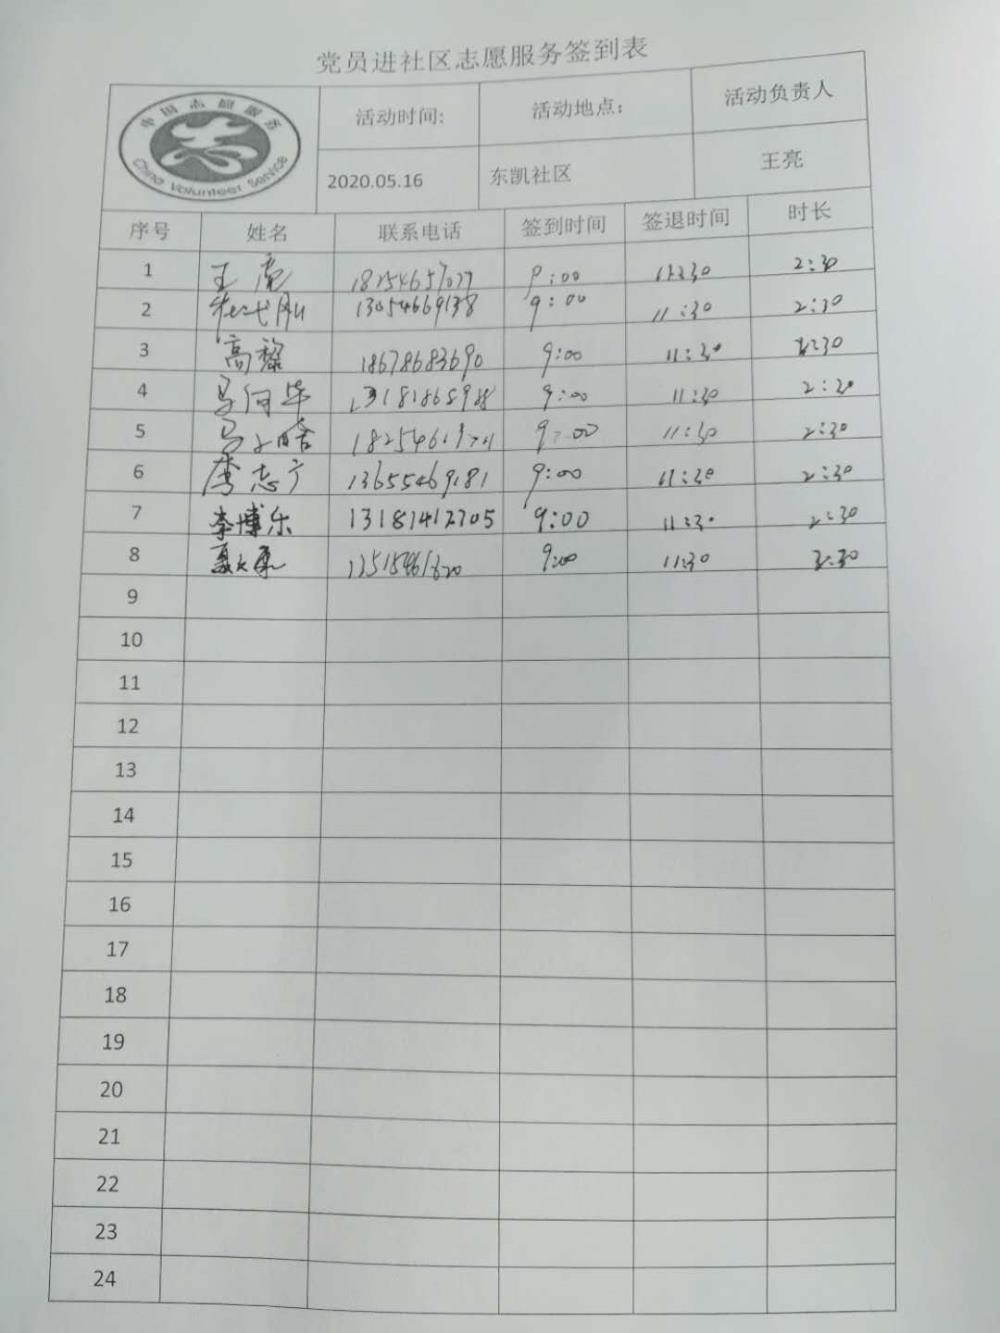 党员进社区志愿服务签到表
中国志愿服务
China Volunteer Service
活动时间: 活动地点: 活动负责人
2020.05.16 东凯社区 王亮
序号 姓名 联系电话 签到时间 签退时间 时长
1 王虎 9:00 11:30 2:30
2 13054669138 9:00 11:30 2:30
3 高黎 18678683690 9:00 11:30 2:30
4 9:00 11:30 2:30
5 9:00 11:30 2:30
6 李志广 13655469181 9:00 11:30 2:30
7 李博乐 13181412705 9:00 11:30 2:30
8 9:00 11:30 2:30
9
10
11
12
13
14
15
16
17
18
19
20
21
22
23
24